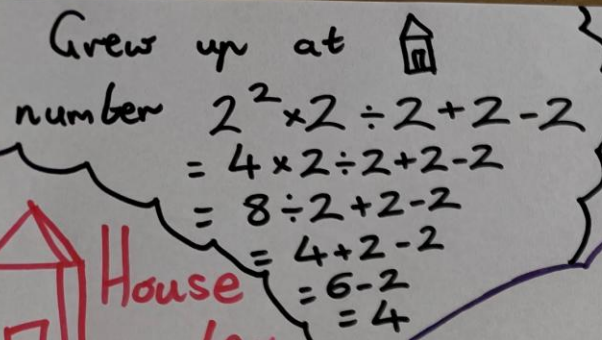 Grew up at
number 2² × 2 ÷ 2 + 2 - 2
= 4 × 2 ÷ 2 + 2 - 2
= 8 ÷ 2 + 2 - 2
= 4 + 2 - 2
= 6 - 2
= 4
House